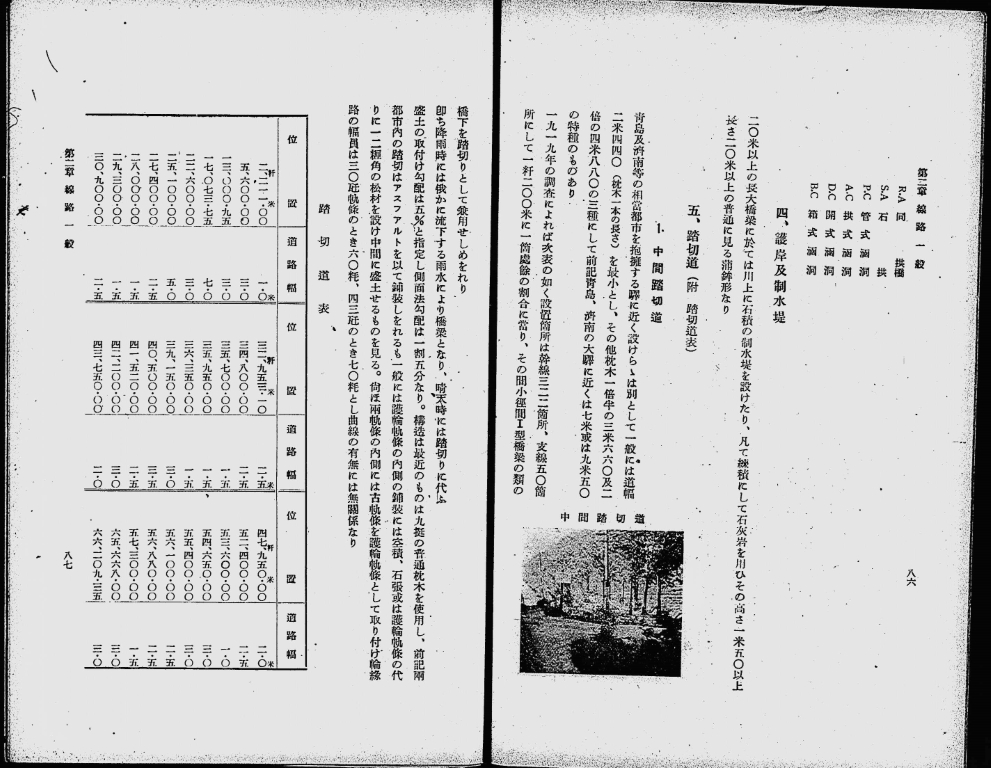 第二章 線路一般
R.A 同 拱橋
S.A 石 拱
P.C 管式涵洞
A.C 拱式涵洞
D.C 開式涵洞
B.C 箱式涵洞
四、護岸及制水堤
二〇米以上の長大橋梁に於ては川上に石積の制水堤を設けたり、凡て練積にして石灰岩を用ひその高さ一米五〇以上
長さ二〇米以上の普通に見る蒲鉾形なり
五、踏切道(附 踏切道表)
1. 中間踏切道
青島及濟南等の相當都市を抱擁する驛に近く設けらゝは別として一般には道幅
二米四四〇(枕木一本の長さ)を最小とし、その他枕木一倍半の三米六六〇及二
倍の四米八八〇の三種にして前記靑島、濟南の大驛に近くは七米或は九米五〇
の特種のものあり
一九一九年の調査によれば次表の如く設置箇所は幹線三二二箇所、支線五〇箇
所にして一粁二〇〇米に一箇處餘の割合に當り、その間小徑間I型橋梁の類の
中間踏切道
八六
橋下を踏切りとして兼用せしめをれり
卽ち降雨時には俄かに流下する雨水により橋梁となり、晴天時には踏切りに代ふ
盛土の取付け勾配は五%と指定し側面法勾配は一割五分なり。構造は最近のものは九挺の普通枕木を使用し、前記兩
都市內の踏切はアスファルトを以て鋪裝しをれるも一般には護輪軌條の內側の鋪裝には空積、石張或は護輪軌條の代
りに一二糎角の松材を設け中間に盛土せるものを見る。尙ほ兩軌條の內側には古軌條を護輪軌條として取り付け輪緣
路の幅員は三〇瓩軌條のとき六〇粍、四三瓩のとき七〇粍とし曲線の有無には無關係なり
踏切道表
位置 道路幅 位置 道路幅 位置 道路幅
二粁、二一一・〇〇米 一・〇米 三二粁、九五三・一〇米 二・五米 四七粁、九五〇・〇〇米 二・〇米
五、六〇〇・〇〇 三・〇 三四、八〇〇・〇〇 二・五 五二、四〇〇・〇〇 二・五
一三、〇〇〇・九五 三・〇 三五、七〇〇・〇〇 一・五 五三、六〇〇・〇〇 一・〇
一七、〇七三・七五 七・〇 三五、九五〇・〇〇 一・五 五四、六五〇・〇〇 三・〇
二二、六〇〇・〇〇 三・〇 三六、三五〇・〇〇 一・五 五五、四〇〇・〇〇 三・〇
二五、一〇〇・〇〇 五・〇 三九、一五〇・〇〇 三・〇 五六、一〇〇・〇〇 二・五
二七、四〇〇・〇〇 二・五 四〇、五〇〇・〇〇 三・五 五六、八八〇・〇〇 二・五
二八、〇〇〇・〇〇 一・五 四一、五二〇・〇〇 二・五 五七、三〇〇・〇〇 一・五
二九、三〇〇・〇〇 一・五 四二、二〇〇・〇〇 三・〇 六五、六六八・〇〇 三・〇
三〇、九〇〇・〇〇 二・五 四三、七五〇・〇〇 二・〇 六六、二〇九・三五 三・〇
第二章 線路一般
八七